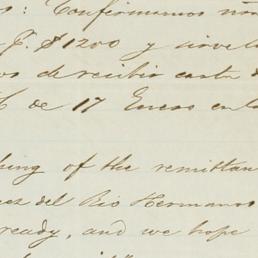 s: Confirmamos n
F. $1200 y
os de recibir carta d
de 17 Enero en
hing of the remittan
ez del Rio Hermanos
ready, and we hope